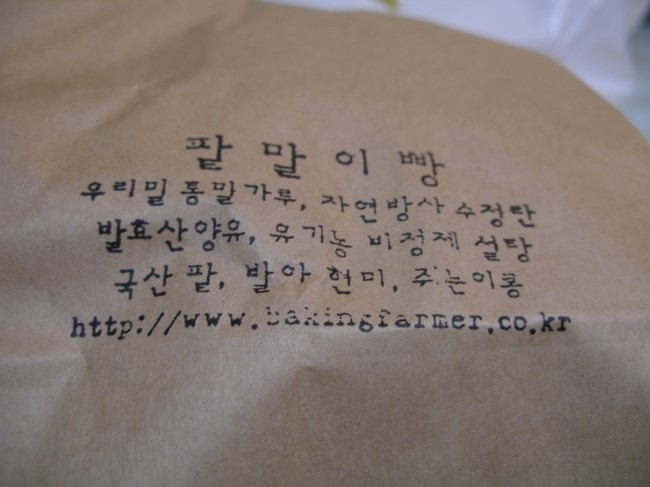 팥 말 이 빵
우리밀 통밀가루, 자연방사 수정란
발효산양유, 유기농 비정제 설탕
국산 팥, 발아 현미, 주눈이콩
http://www.bakingfarmer.co.kr